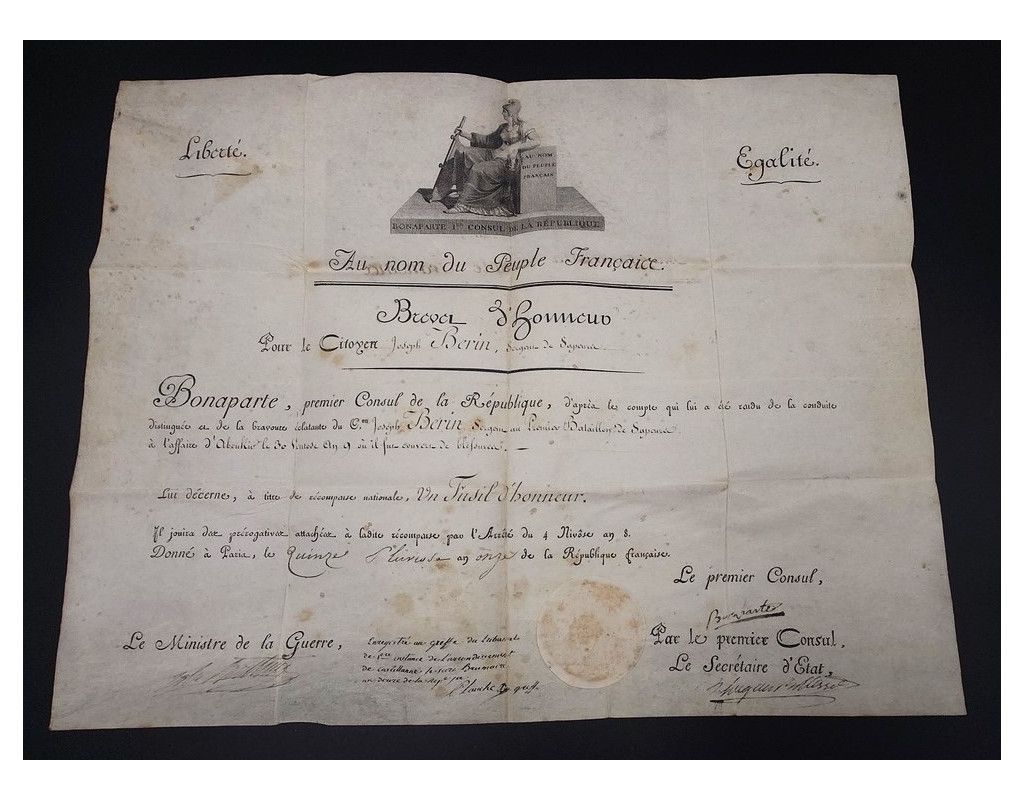 Liberté.
Egalité.
AU NOM
DU PEUPLE
FRANÇAIS
BONAPARTE 1er CONSUL DE LA RÉPUBLIQUE
Au nom du Peuple Français.
Brevet d'Honneur
Pour le Citoyen Joseph Berin, Sergent de Sapeurs.
Bonaparte, premier Consul de la République, d'après le compte qui lui a été rendu de la conduite
distinguée et de la bravoure éclatante du C.en Joseph Berin Sergent au Premier Bataillon de Sapeurs.
à l'affaire d'Aboukir le 30 Ventose An 9 où il fut couvert de blessures.
Lui décerne, à titre de récompense nationale, Un Fusil d'honneur.
Il jouira des prérogatives attachées à ladite récompense par l'Arrêté du 4 Nivôse an 8.
Donné à Paris, le Quinze Pluviose an onze de la République française.
Le premier Consul,
Bonaparte
Par le premier Consul,
Le Secrétaire d'Etat,
Le Ministre de la Guerre,
Enregistré au greffe du tribunal
de 1ere instance de l'arrondissement
de Castellanne le seize Brumaire
an douze de la rep.